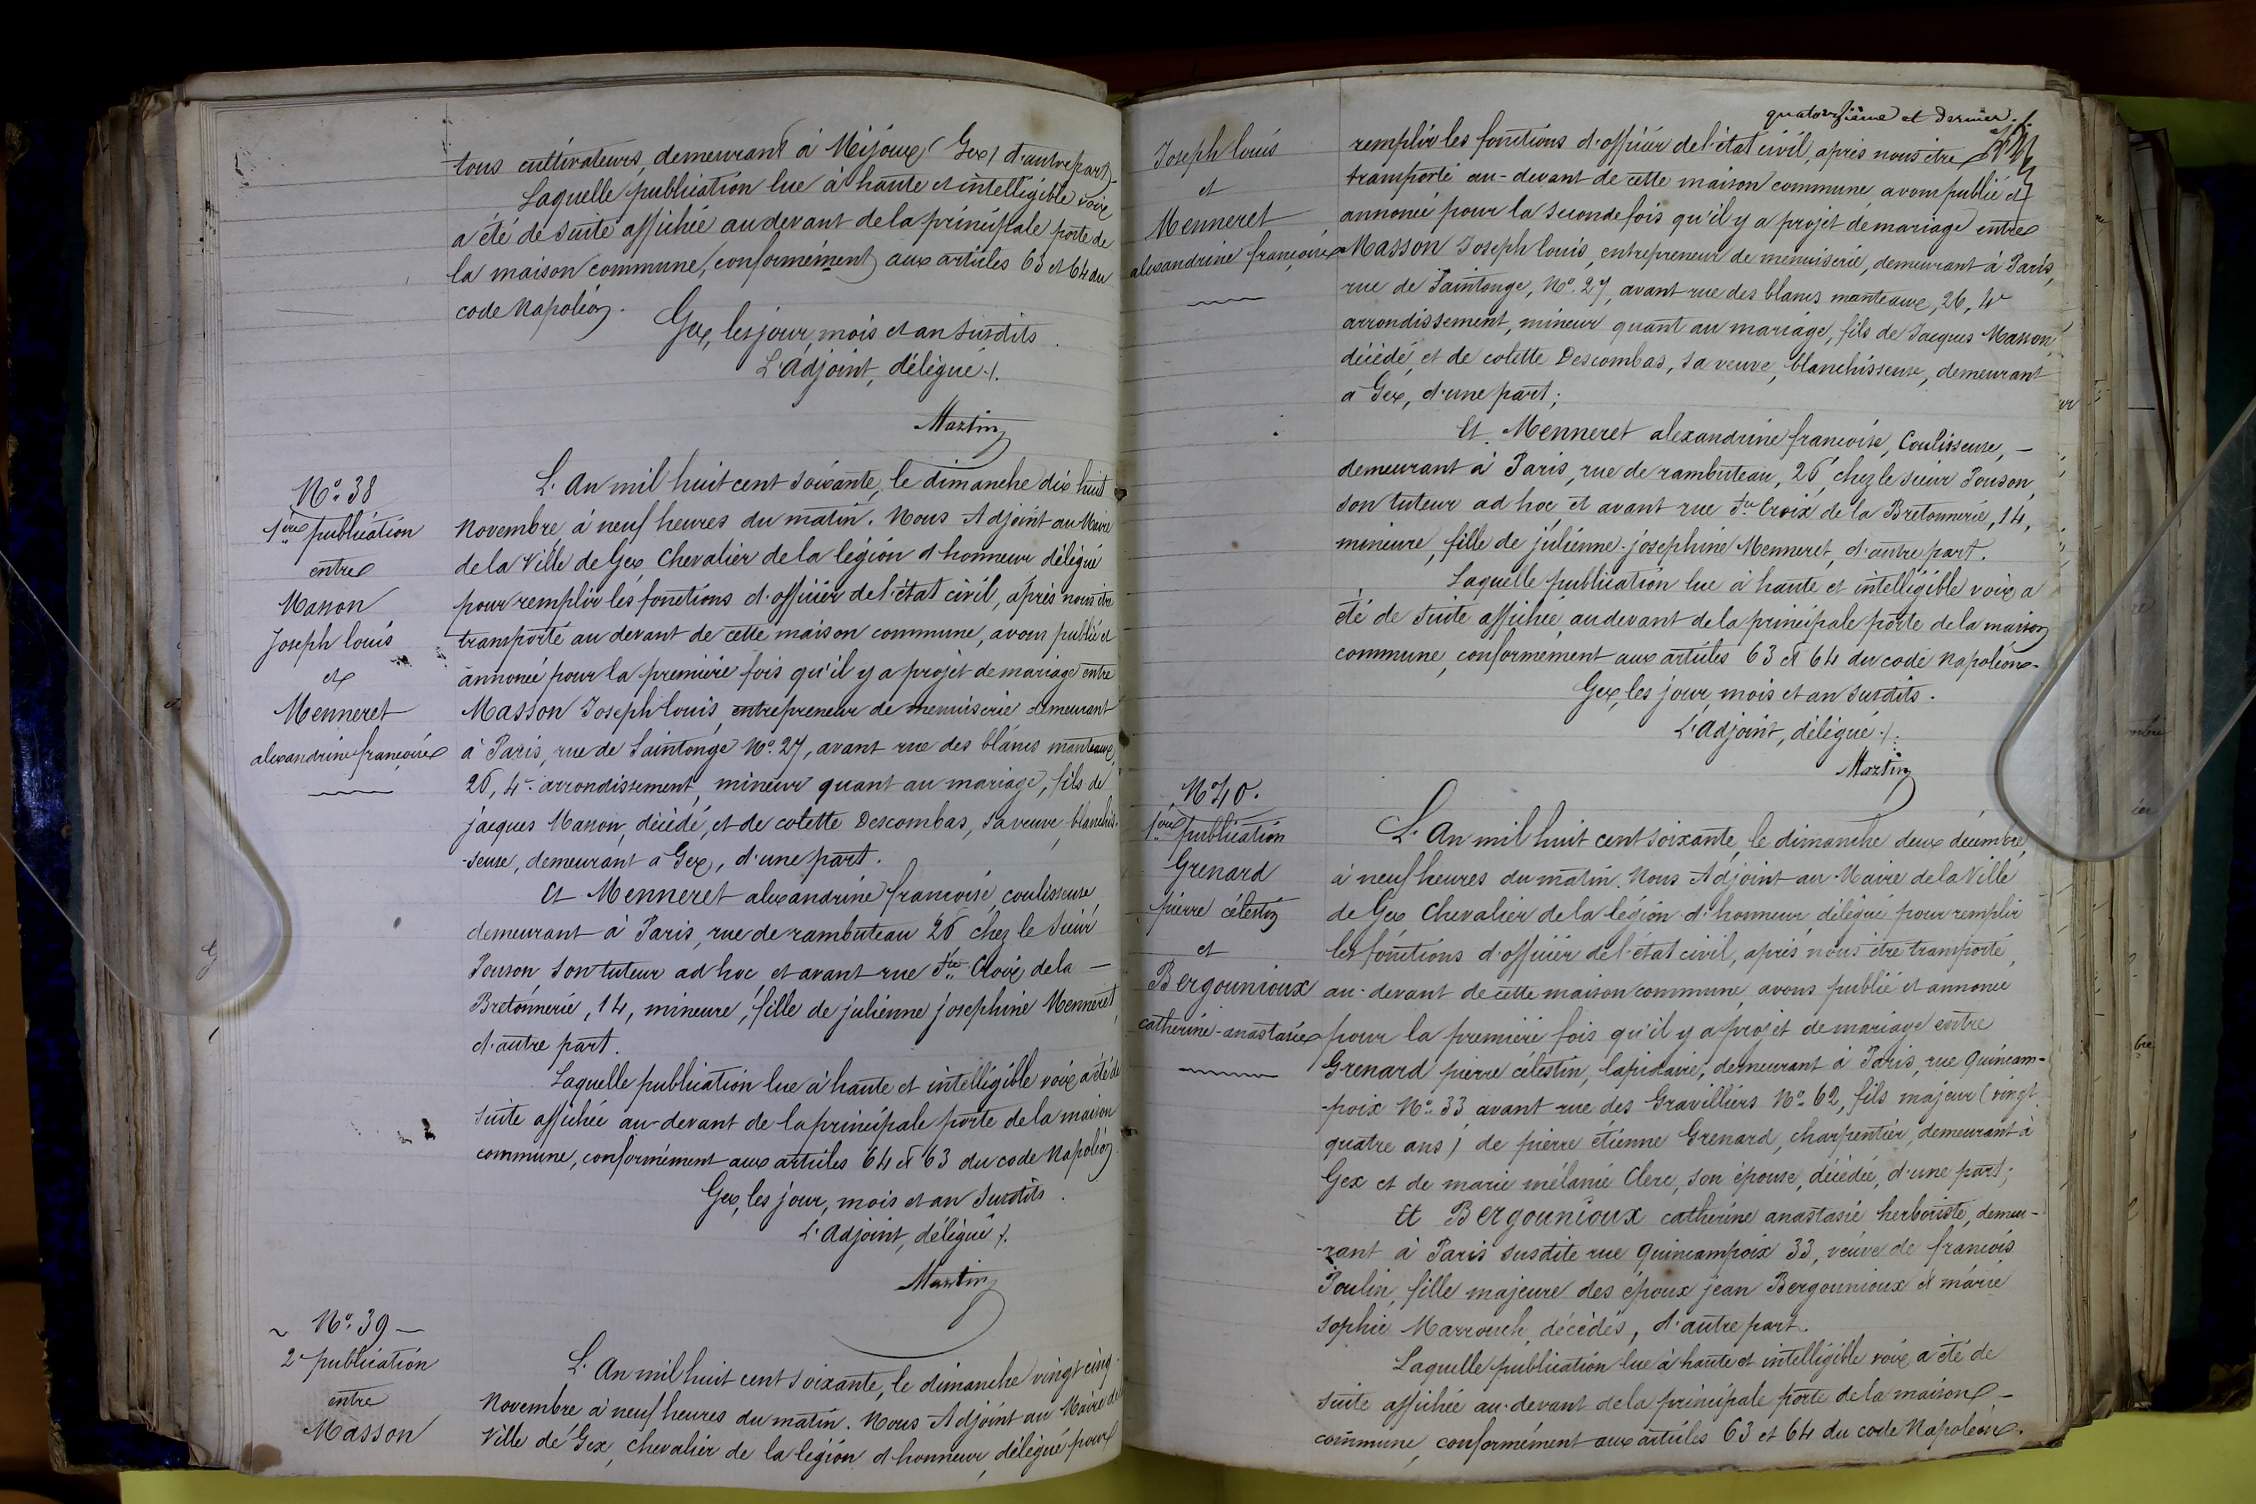 tous cultivateurs, demeurant à Mijoux (Gex) d'autre part.
Laquelle publication lue à haute et intelligible voix
a été de suite affichée au devant de la principale porte de
la maison commune, conformément aux articles 63 et 64 du
code Napoléon.
Gex, les jour, mois et an susdits.
L'adjoint, délégué ./.
Martin
No. 38
1ère publication
entre
Masson
Joseph louis
et
Menneret
alexandrine françoise
L'An mil huit cent soixante, le dimanche dix huit
Novembre à neuf heures du matin. Nous Adjoint au Maire
de la Ville de Gex Chevalier de la légion d'honneur délégué
pour remplir les fonctions d'officier de l'état civil, après nous être
transporté au devant de cette maison commune, avons publié et
annoncé pour la première fois qu'il y a projet de mariage entre
Masson Joseph louis, entrepreneur de menuiserie demeurant
à Paris, rue de Saintonge No. 27, avant rue des blancs manteaux,
26, 4e arrondissement, mineur quant au mariage, fils de
jacques Masson, décédé, et de colette Descombas, sa veuve, blanchis-
-seuse, demeurant à Gex, d'une part.
Et Menneret alexandrine françoise, coulisseuse,
demeurant à Paris, rue de rambuteau 26 chez le sieur
Pouson, son tuteur ad hoc, et avant rue Ste Croix de la
Bretonnerie, 14, mineure, fille de julienne josephine Menneret,
d'autre part.
Laquelle publication lue à haute et intelligible voix a été de
suite affichée au-devant de la principale porte de la maison
commune, conformément aux articles 64 et 63 du code Napoléon
Gex, les jour, mois et an susdits.
L'adjoint, délégué ./.
Martin
No. 39
2e publication
entre
Masson
L'An mil huit cent soixante, le dimanche vingt cinq
Novembre à neuf heures du matin. Nous Adjoint au Maire de la
Ville de Gex, chevalier de la légion d'honneur, délégué pour
quatorzième et dernier ./.
Joseph louis
et
Menneret
alexandrine françoise
remplir les fonctions d'officier de l'état civil, après nous être
transporté au-devant de cette maison commune avons publié et
annoncé pour la seconde fois qu'il y a projet de mariage entre
Masson Joseph louis, entrepreneur de menuiserie, demeurant à Paris,
rue de Saintonge, No. 27, avant rue des blancs manteaux, 26, 4e
arrondissement, mineur quant au mariage, fils de Jacques Masson,
décédé, et de colette Descombas, sa veuve, blanchisseuse, demeurant
à Gex, d'une part;
Et Menneret alexandrine françoise, Coulisseuse,
demeurant à Paris, rue de rambuteau, 26, chez le sieur Pouson,
son tuteur ad hoc, et avant rue Ste Croix de la Bretonnerie, 14,
mineure, fille de julienne josephine Menneret, d'autre part.
Laquelle publication lue à haute et intelligible voix a
été de suite affichée au devant de la principale porte de la maison
commune, conformément aux articles 63 et 64 du code Napoléon.
Gex, les jour, mois et an susdits.
L'adjoint, délégué ./.
Martin
No. 40.
1ère publication
Grenard
pierre célestin
et
Bergounioux
catherine-anastasie
L'An mil huit cent soixante, le dimanche deux décembre,
à neuf heures du matin. Nous Adjoint au Maire de la Ville
de Gex Chevalier de la légion d'honneur, délégué pour remplir
les fonctions d'officier de l'état civil, après nous être transporté,
au-devant de cette maison commune, avons publié et annoncé
pour la première fois qu'il y a projet de mariage entre
Grenard pierre célestin, lapidaire, demeurant à Paris, rue Quincam-
-poix No. 33 avant rue des Gravilliers No. 62, fils majeur (vingt
quatre ans) de pierre étienne Grenard, charpentier, demeurant à
Gex et de marie mélanie Clerc, son épouse, décédée, d'une part;
Et Bergounioux catherine anastasie herboriste, demeu-
-rant à Paris susdite rue Quincampoix 33, veuve de françois
Poulin, fille majeure des époux jean Bergounioux et marie
sophie Marrouch, décédés, d'autre part.
Laquelle publication lue à haute et intelligible voix a été de
suite affichée au-devant de la principale porte de la maison
commune, conformément aux articles 63 et 64 du code Napoléon.